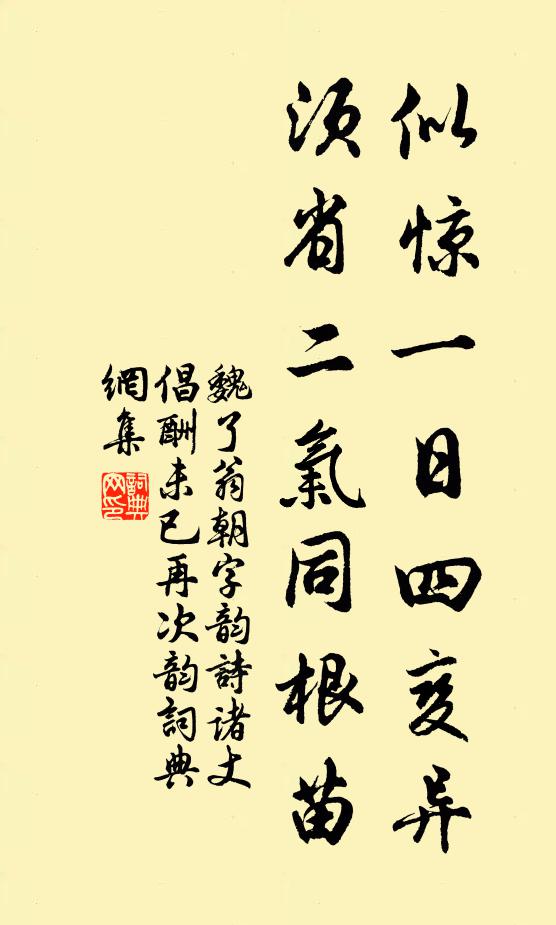 似惊一日四变异
须省二氣同根苗
魏了翁朝字韵詩诸丈
倡酬未已再次韵詞典
網集
詞典网印